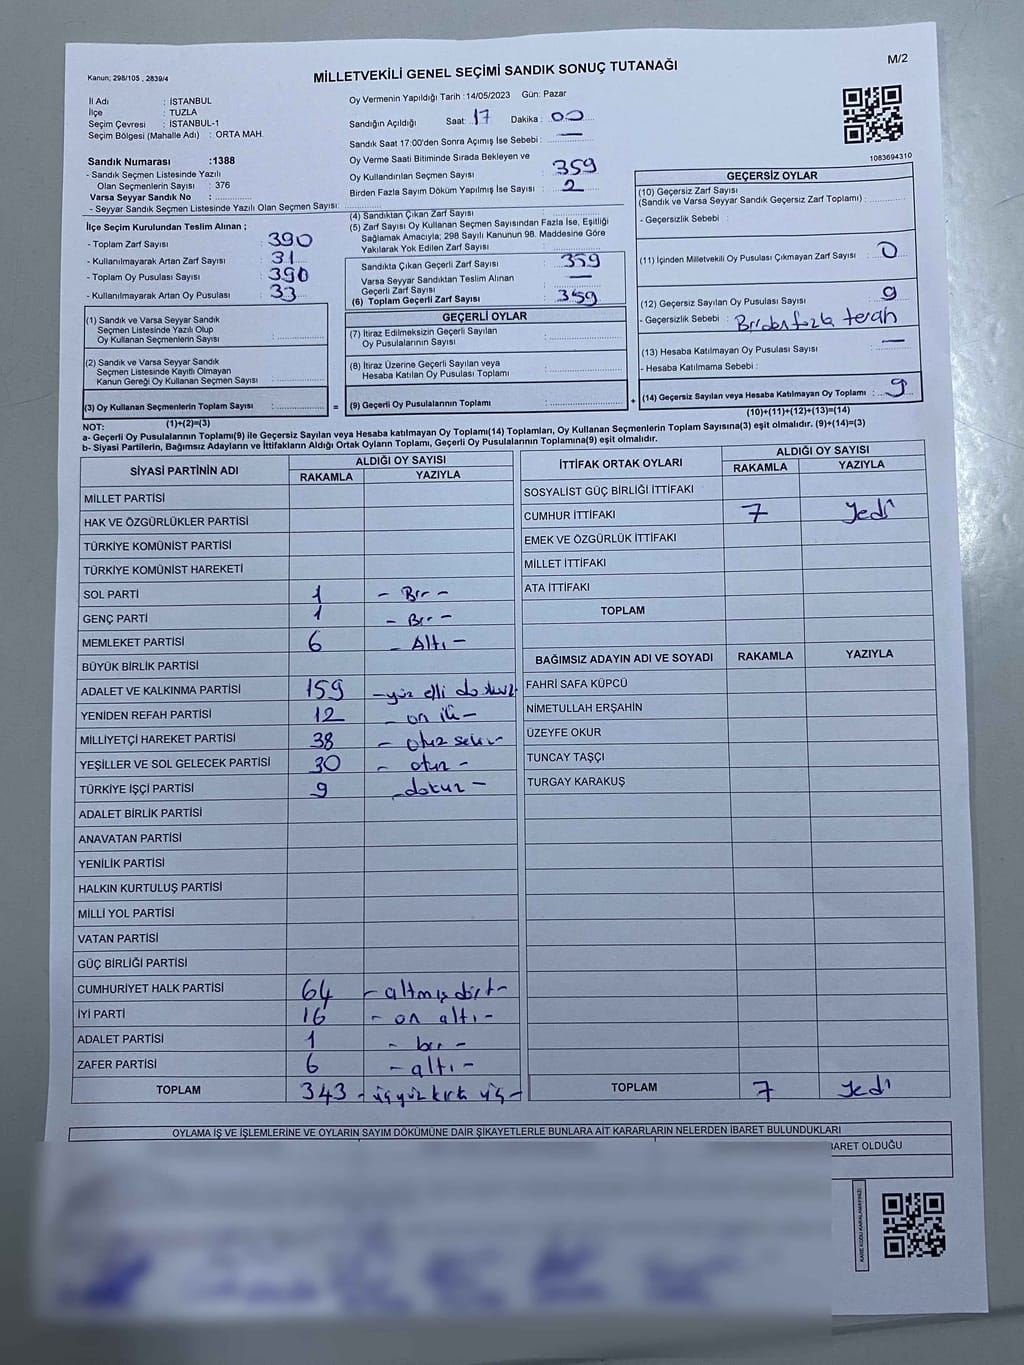 M/2
Kanun; 298/105 , 2839/4
MİLLETVEKİLİ GENEL SEÇİMİ SANDIK SONUÇ TUTANAĞI
İl Adı : İSTANBUL
İlçe : TUZLA
Seçim Çevresi : İSTANBUL-1
Seçim Bölgesi (Mahalle Adı) : ORTA MAH.
Sandık Numarası :1388
- Sandık Seçmen Listesinde Yazılı
Olan Seçmenlerin Sayısı : 376
Varsa Seyyar Sandık No :
- Seyyar Sandık Seçmen Listesinde Yazılı Olan Seçmen Sayısı:
Oy Vermenin Yapıldığı Tarih :14/05/2023 Gün: Pazar
Sandığın Açıldığı Saat : 17 Dakika : 00
Sandık Saat 17:00'den Sonra Açımış İse Sebebi : —
Oy Verme Saati Bitiminde Sırada Bekleyen ve
Oy Kullandırılan Seçmen Sayısı : 359
Birden Fazla Sayım Döküm Yapılmış İse Sayısı : 2
1083694310
İlçe Seçim Kurulundan Teslim Alınan ;
- Toplam Zarf Sayısı : 390
- Kullanılmayarak Artan Zarf Sayısı : 31
- Toplam Oy Pusulası Sayısı : 390
- Kullanılmayarak Artan Oy Pusulası : 33
(1) Sandık ve Varsa Seyyar Sandık
Seçmen Listesinde Yazılı Olup
Oy Kullanan Seçmenlerin Sayısı :
(2) Sandık ve Varsa Seyyar Sandık
Seçmen Listesinde Kayıtlı Olmayan
Kanun Gereği Oy Kullanan Seçmen Sayısı :
(3) Oy Kullanan Seçmenlerin Toplam Sayısı :
(1)+(2)=(3)
(4) Sandıktan Çıkan Zarf Sayısı :
(5) Zarf Sayısı Oy Kullanan Seçmen Sayısından Fazla İse, Eşitliği
Sağlamak Amacıyla; 298 Sayılı Kanunun 98. Maddesine Göre
Yakılarak Yok Edilen Zarf Sayısı :
Sandıkta Çıkan Geçerli Zarf Sayısı : 359
Varsa Seyyar Sandıktan Teslim Alınan
Geçerli Zarf Sayısı : —
(6) Toplam Geçerli Zarf Sayısı : 359
GEÇERLİ OYLAR
(7) İtiraz Edilmeksizin Geçerli Sayılan
Oy Pusulalarının Sayısı :
(8) İtiraz Üzerine Geçerli Sayılan veya
Hesaba Katılan Oy Pusulası Toplamı :
= (9) Geçerli Oy Pusulalarının Toplamı : +
GEÇERSİZ OYLAR
(10) Geçersiz Zarf Sayısı
(Sandık ve Varsa Seyyar Sandık Geçersiz Zarf Toplamı) :
- Geçersizlik Sebebi :
(11) İçinden Milletvekil Oy Pusulası Çıkmayan Zarf Sayısı : 0
(12) Geçersiz Sayılan Oy Pusulası Sayısı : 9
- Geçersizlik Sebebi :
(13) Hesaba Katılmayan Oy Pusulası Sayısı : —
- Hesaba Katılmama Sebebi :
(14) Geçersiz Sayılan veya Hesaba Katılmayan Oy Toplamı : 9
(10)+(11)+(12)+(13)=(14)
NOT:
a- Geçerli Oy Pusulalarının Toplamı(9) ile Geçersiz Sayılan veya Hesaba Katılmayan Oy Toplamı(14) Toplamları, Oy Kullanan Seçmenlerin Toplam Sayısına(3) eşit olmalıdır. (9)+(14)=(3)
b- Siyasi Partilerin, Bağımsız Adayların ve İttifakların Aldığı Ortak Oyların Toplamı, Geçerli Oy Pusulalarının Toplamına(9) eşit olmalıdır.
SİYASİ PARTİNİN ADI
ALDIĞI OY SAYISI
RAKAMLA YAZIYLA
MİLLET PARTİSİ
HAK VE ÖZGÜRLÜKLER PARTİSİ
TÜRKİYE KOMÜNİST PARTİSİ
TÜRKİYE KOMÜNİST HAREKETİ
SOL PARTİ 1 - Bir -
GENÇ PARTİ 1 - Bir -
MEMLEKET PARTİSİ 6 - Altı -
BÜYÜK BİRLİK PARTİSİ
ADALET VE KALKINMA PARTİSİ 159 - yüz elli dokuz -
YENİDEN REFAH PARTİSİ 12 - on iki -
MİLLİYETÇİ HAREKET PARTİSİ 38 - otuz sekiz -
YEŞİLLER VE SOL GELECEK PARTİSİ 30 - otuz -
TÜRKİYE İŞÇİ PARTİSİ 9 - dokuz -
ADALET BİRLİK PARTİSİ
ANAVATAN PARTİSİ
YENİLİK PARTİSİ
HALKIN KURTULUŞ PARTİSİ
MİLLİ YOL PARTİSİ
VATAN PARTİSİ
GÜÇ BİRLİĞİ PARTİSİ
CUMHURİYET HALK PARTİSİ 64 - altmış dört -
İYİ PARTİ 16 - on altı -
ADALET PARTİSİ 1 - bir -
ZAFER PARTİSİ 6 - altı -
TOPLAM 343 - üçyüz kırk üç -
İTTİFAK ORTAK OYLARI
ALDIĞI OY SAYISI
RAKAMLA YAZIYLA
SOSYALİST GÜÇ BİRLİĞİ İTTİFAKI
CUMHUR İTTİFAKI 7 Yedi
EMEK VE ÖZGÜRLÜK İTTİFAKI
MİLLET İTTİFAKI
ATA İTTİFAKI
TOPLAM
BAĞIMSIZ ADAYIN ADI VE SOYADI RAKAMLA YAZIYLA
FAHRİ SAFA KÜPCÜ
NİMETULLAH ERŞAHİN
ÜZEYFE OKUR
TUNCAY TAŞÇI
TURGAY KARAKUŞ
TOPLAM 7 Yedi
OYLAMA İŞ VE İŞLEMLERİNE VE OYLARIN SAYIM DÖKÜMÜNE DAİR ŞİKAYETLERLE BUNLARA AİT KARARLARIN NELERDEN İBARET BULUNDUKLARI
BARET OLDUĞU
KARE KODU KARALAMAYINIZ!